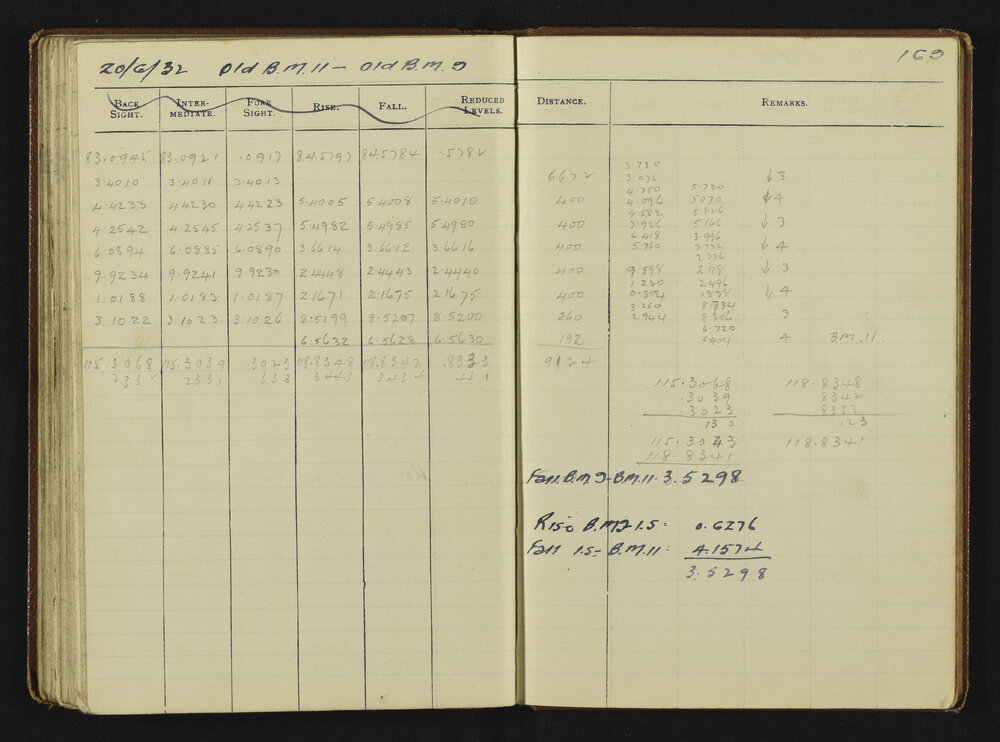 20/6/32 Old B.M.11 – Old B.M.9
169
BACK SIGHT. INTER-MEDIATE. FORE SIGHT. RISE. FALL. REDUCED LEVELS. DISTANCE. REMARKS.
83.0945 83.0921 .0917 84.5797 84.5784 .5782
3.730
3.4010 3.4011 3.4013 6672 3.076 ↓3
4.750 5.730
4.4233 4.4230 4.4223 5.4005 5.4008 5.4010 400 4.096 5.070 ↓4
4.582 5.826
4.2542 4.2545 4.2537 5.4982 5.4985 5.4980 400 3.926 5.166 ↓3
6.418 3.996
6.0894 6.0885 6.0890 3.6614 3.6612 3.6616 400 5.760 ↓4
2.776
9.9234 9.9241 9.9230 2.4448 2.4443 2.4440 400 9.598 2.118 ↓3
1.230 2.496
1.0188 1.0183 1.0187 2.1671 2.1675 2.1675 400 1.838 ↓4
3.260 8.734
3.1022 3.1023 3.1026 8.5199 8.5207 8.5200 260 2.944 8.306 3
6.720
6.5632 6.5628 6.5630 192 6.404 4 B.M.11
115.3068 115.3039 .3023 118.8348 118.8342 .8333 9124
2332 2331 333 3443 3434 431
115.3068 118.8348
.3039 8342
.3023 8333
130 123
115.3043 118.8341
118.8341
Fall B.M.9 – B.M.11. 3.5298
Rise B.M.9 1.5: 0.6276
Fall 1.5 – B.M.11: 4.1574
3.5298